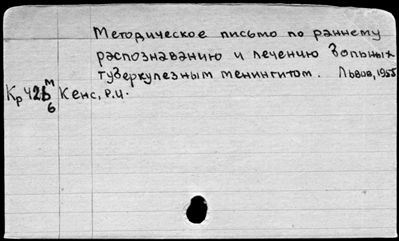 Методическое письмо по раннему
распознаванию и лечению больных
туберкулезным менингитом. Львов, 1955
Кр42б м/б Кенс, Р.И.